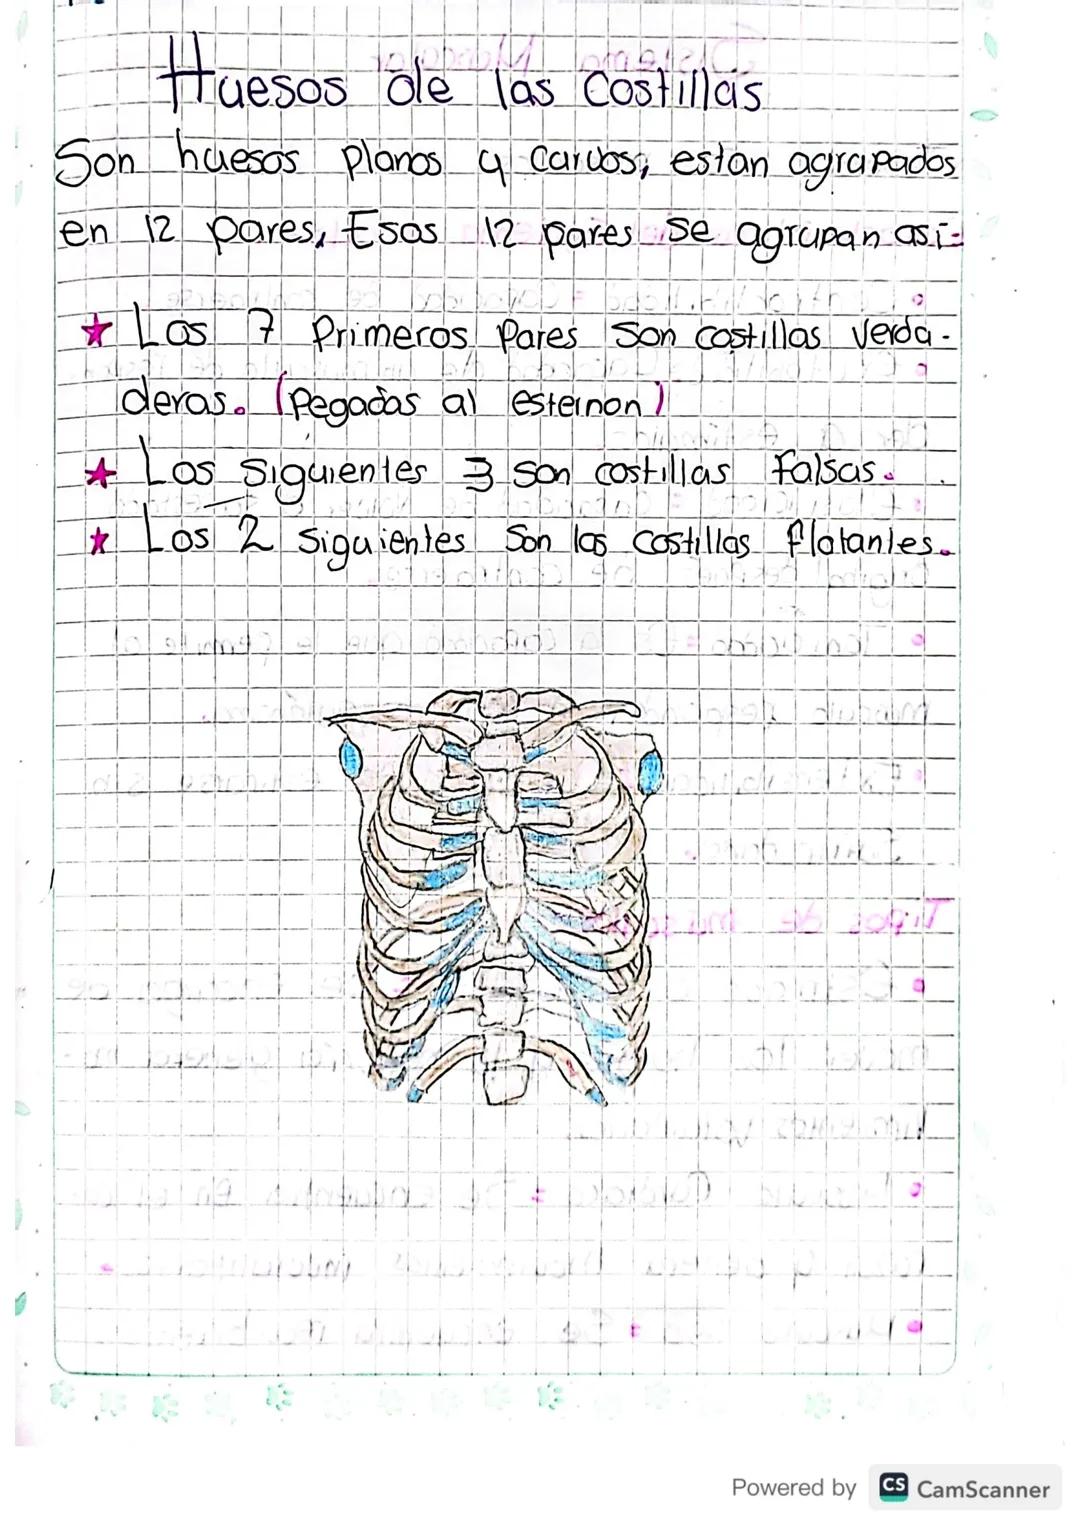 Huesos de las Costillas
Son huesos planos y curvos, estan agrupados
en 12 pares, Esos 12 pares se agrupan asi=
★ Los 7 Primeros Pares Son costillas Verda-
deras. (Pegados al esternon)
★ Los Siguientes 3 Son costillas Falsas.
★ Los 2 Siguientes Son las Costillas flotantes.
Powered by CS CamScanner